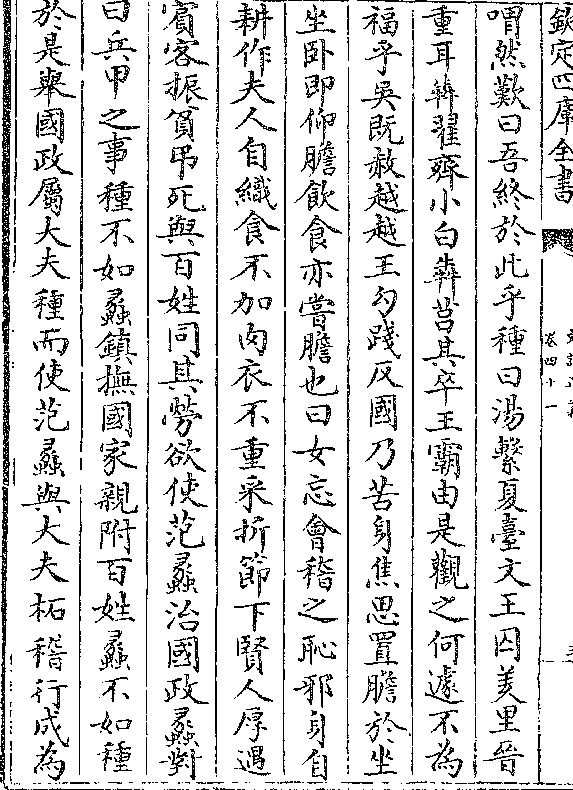 欽定四庫全書
卷四十一
喟然歎曰吾終於此乎種曰湯繫夏臺文王囚羑里晉
重耳犇翟齊小白犇莒其卒王霸由是觀之何遽不為
福乎吳既赦越越王勾踐反國乃苦身焦思置膽於坐
坐卧即仰膽飲食亦嘗膽也曰女忘會稽之恥邪身自
耕作夫人自織食不加肉衣不重采折節下賢人厚遇
賓客振貧弔死與百姓同其勞欲使范蠡治國政蠡對
曰兵甲之事種不如蠡鎮撫國家親附百姓蠡不如種
於是舉國政屬大夫種而使范蠡與大夫柘稽行成為